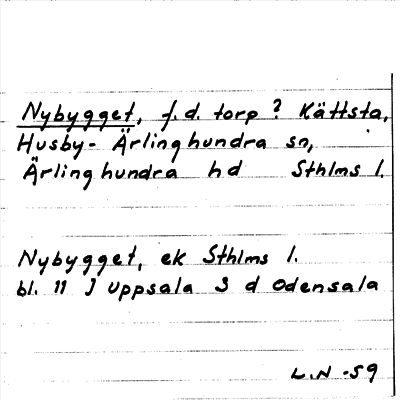 Nybygget, f.d. torp ? Kättsta,
Husby-Ärlinghundra sn,
Ärlinghundra hd Sthlms l.
Nybygget, ek Sthlms l.
bl. 11 J Uppsala 3 d Odensala
L.N -59